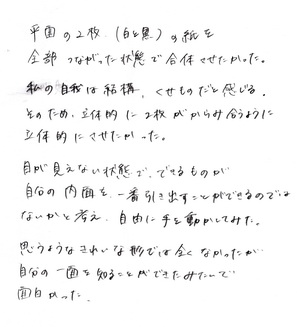 平面の2枚（白と黒）の紙を
全部つながった状態で合体させたかった。
私の自我は結構、くせものだと感じる。
そのため、立体的に2枚がからみ合うように
立体的にさせたかった。
目が見えない状態で、できるものが
自分の内面を一番引き出すことができるのでは
ないかと考え、自由に手を動かしてみた。
思うようなきれいな形では全くなかったが
自分の一面を知ることができたみたいで
面白かった。